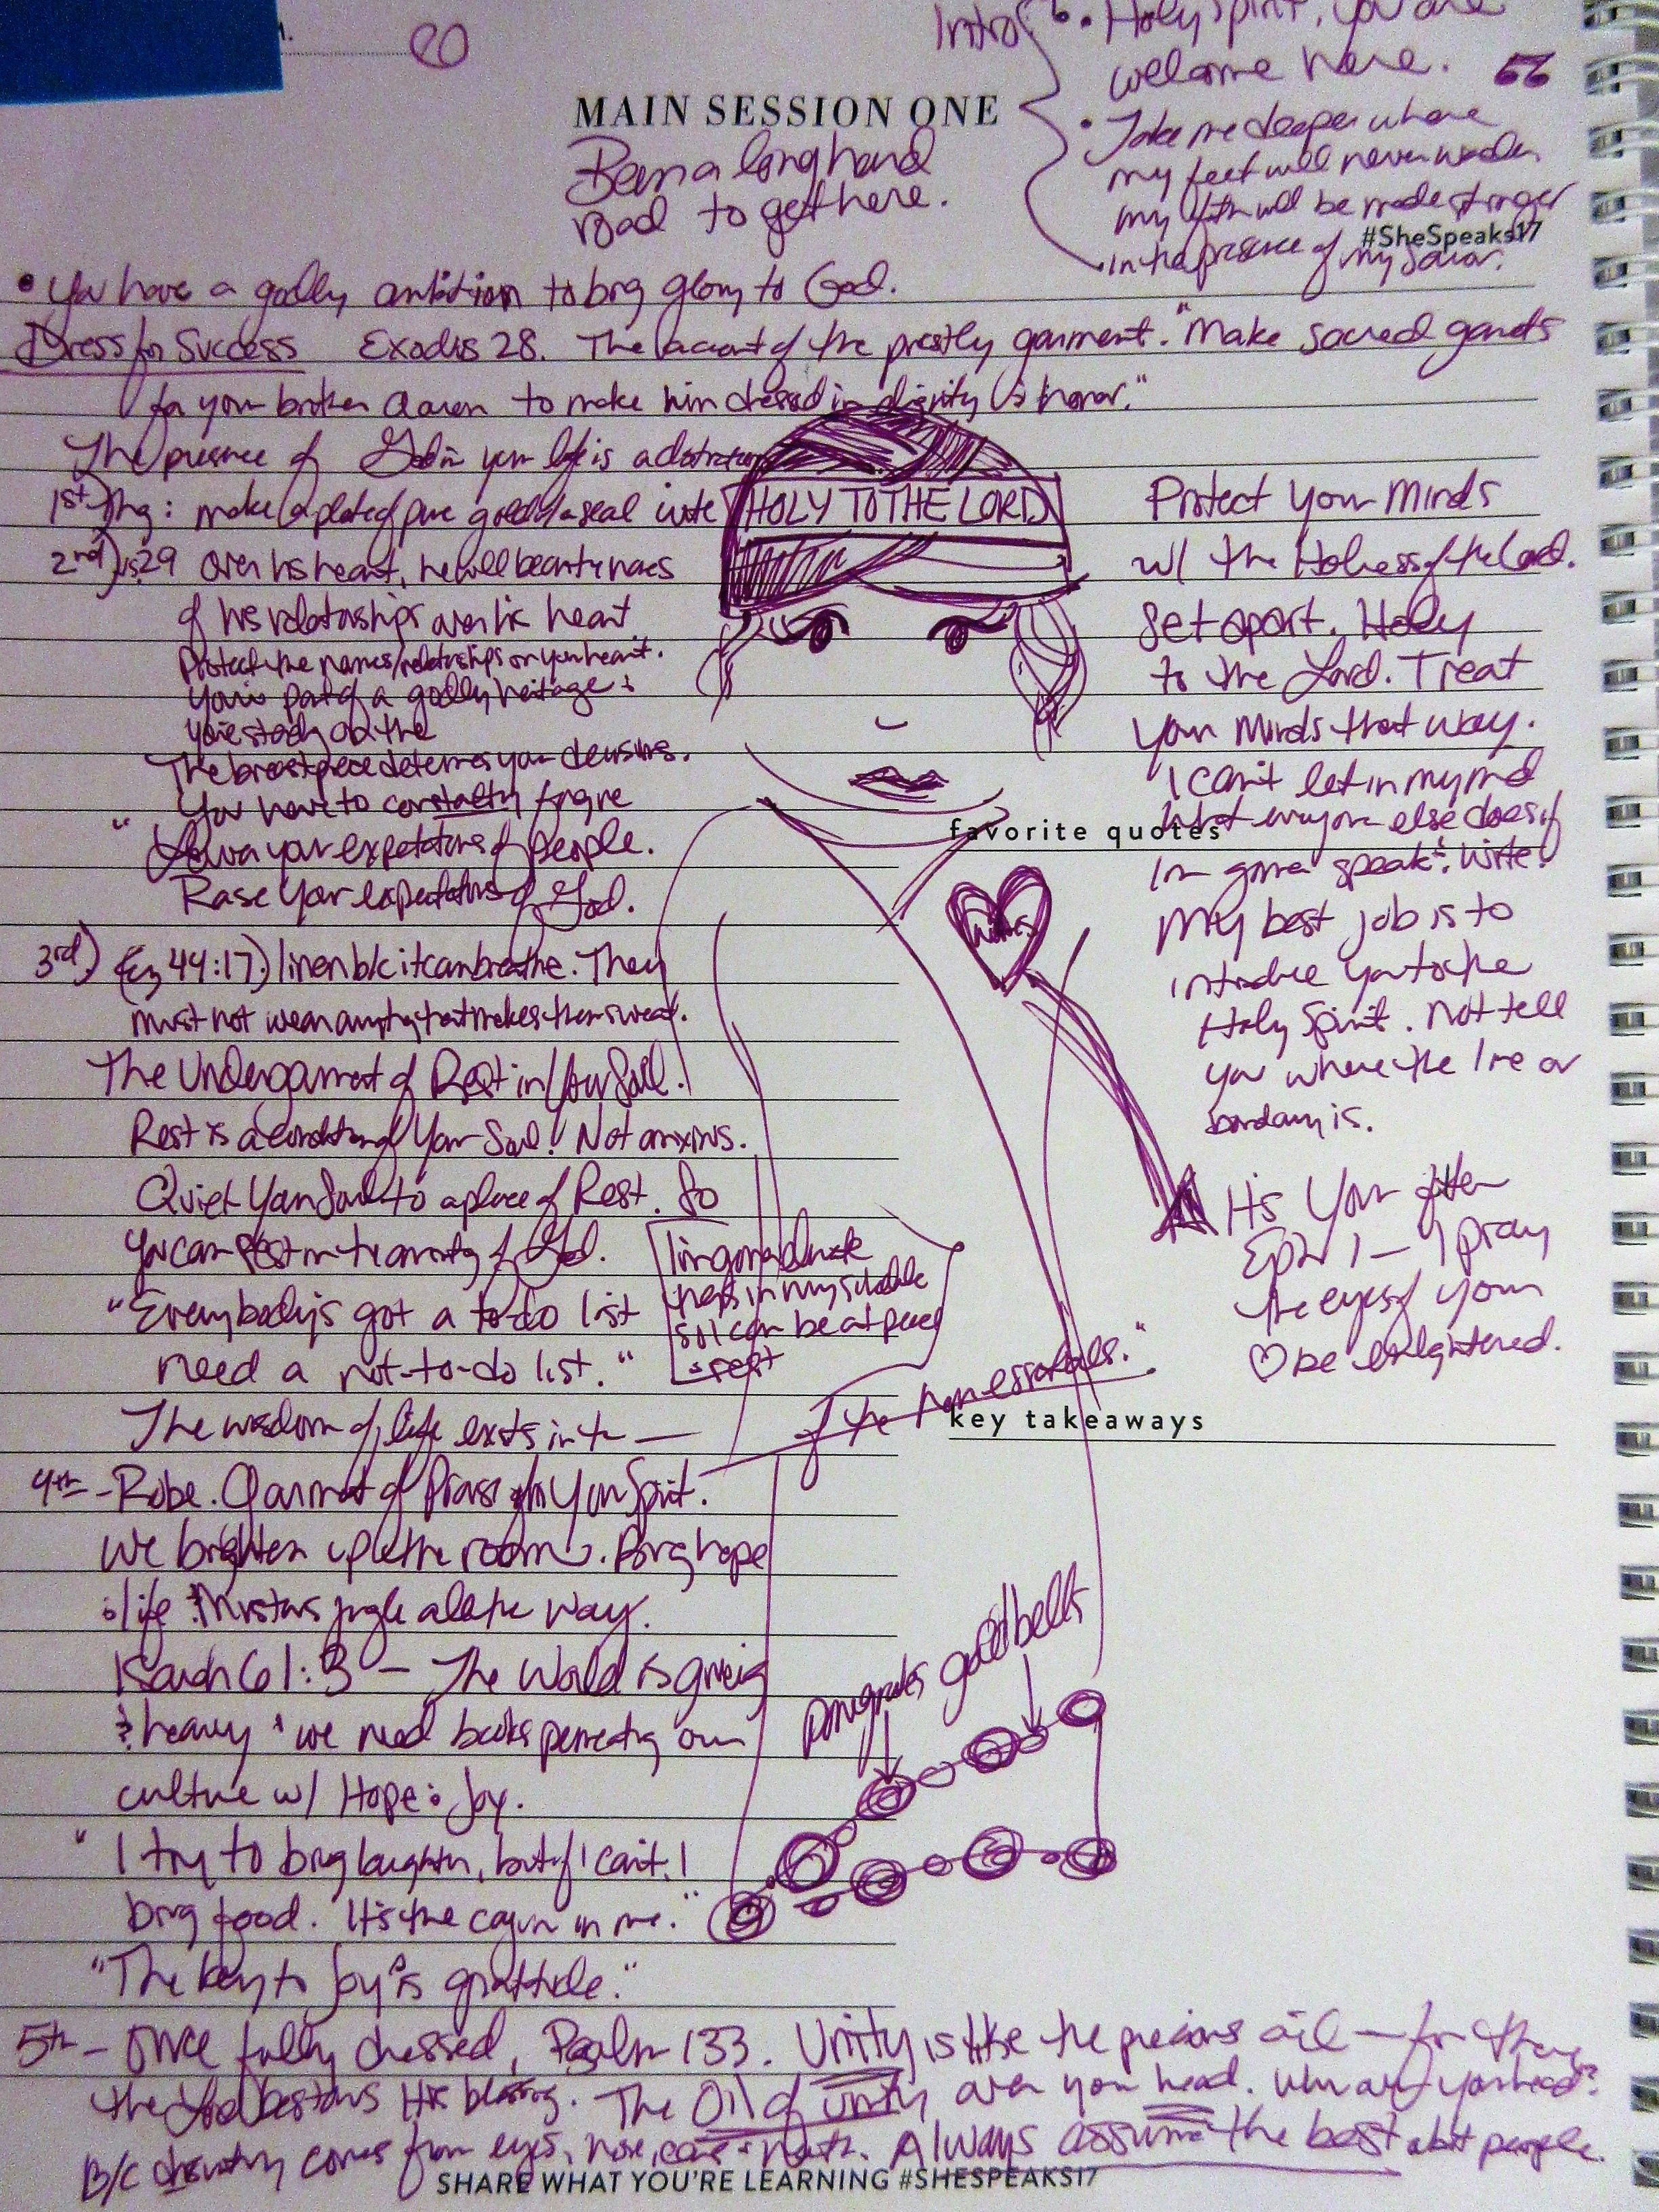 Intro
• Holy Spirit, you are
welcome here.
• Take me deeper where
my feet will never wander
my faith will be made stronger
in the presence of my Savior.
MAIN SESSION ONE
Been a long hard
road to get here.
#SheSpeaks17
• You have a godly ambition to brg glory to God.
Dress for Success Exodus 28. The account of the prestly garment. "Make sacred
for your brother Aaron to make him dressed in dignity & honor."
The presence of God in your life is a
1st) Thg: make a plate of pure gold & a seal write
HOLY TO THE LORD
2nd) vs. 29 Over his heart, he will bear the names
of his relationships over his heart.
Protect the names/relationships on your heart.
You're part of a godly heritage &
The breastpiece determes your decisions.
You have to constantly forgive
"Lower your expectations of people.
Raise your expectations of God.
3rd) (Ez 44:17) linen b/c it can breathe. They
must not wear anythg that makes them sweat.
The Undergarment of Rest in Your Soul.
Rest is a condition of Your Soul! Not anxious.
Quiet Your Soul to a place of Rest. So
you can rest in the of God.
"Everybody's got a to-do list
need a not-to-do list."
The wisdom of life exsts in the —
of the non-essentials."
I'm gonna
thgs in my schedule
so I can be at peace
& rest
4th - Robe. Garment of Praise for Your Spirit.
We brighten up the room. Brng hope
& life & jngle all the way.
Isaiah 61:3 — The World is
& heavy & we need books permeatng our
culture w/ Hope & Joy.
"I try to brg laughter, but if I can't, I
brg food. It's the cajun in me."
"The key to Joy is gratitude."
5th - Once fully dressed, Psalm 133. Unity is like the precious oil — for there
the Lord bestows His blessng. The Oil of unity over your head. Why over your head?
B/c disunity comes from eyes, nose, ears & mouth. Always assume the best abt people.
Protect your Minds
w/ the Holiness of the Lord.
Set apart. Holy
to the Lord. Treat
Your Minds that way.
I can't let in my mnd
what everyone else does if
I'm gonna speak & write!
favorite quotes
My best job is to
introduce you to the
Holy Spirit. Not tell
you where the line or
boundary is.
names
It's Your
Eph 1 — I pray
the eyes of your
♡ be enlightened.
key takeaways
gold bells
SHARE WHAT YOU'RE LEARNING #SHESPEAKS17